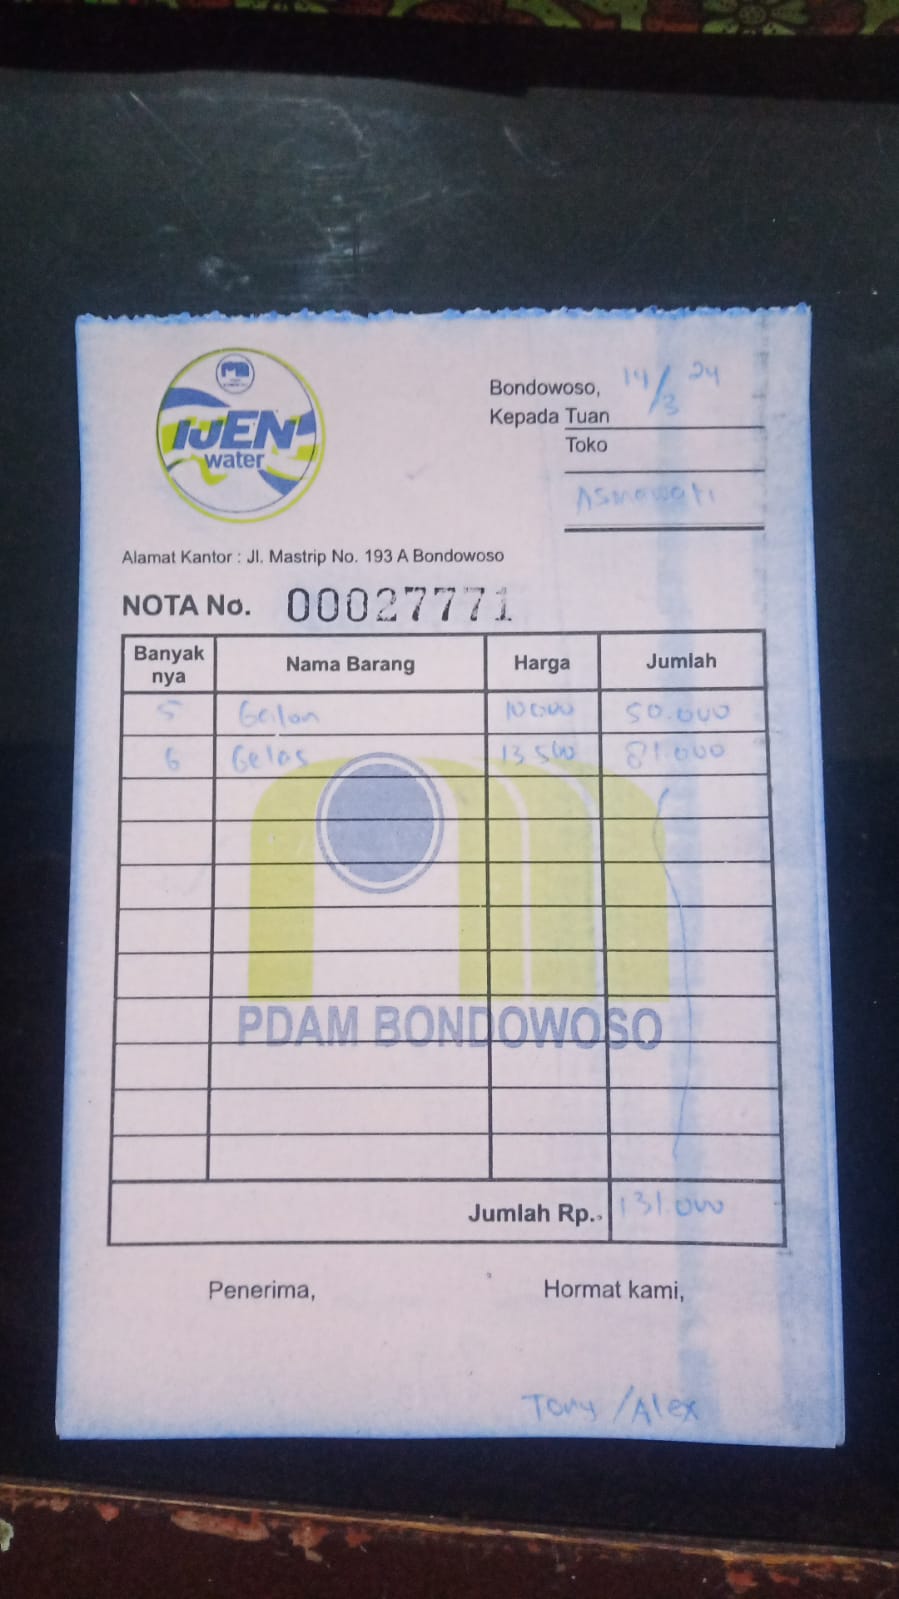 IJEN
water
Bondowoso, 14/3 24
Kepada Tuan
Toko
Asnawati
Alamat Kantor : Jl. Mastrip No. 193 A Bondowoso
NOTA No. 00027771
Banyak nya Nama Barang Harga Jumlah
5 Galon 10.000 50.000
6 Gelas 13.500 81.000
PDAM BONDOWOSO
Jumlah Rp. 131.000
Penerima, Hormat kami,
Tony / Alex